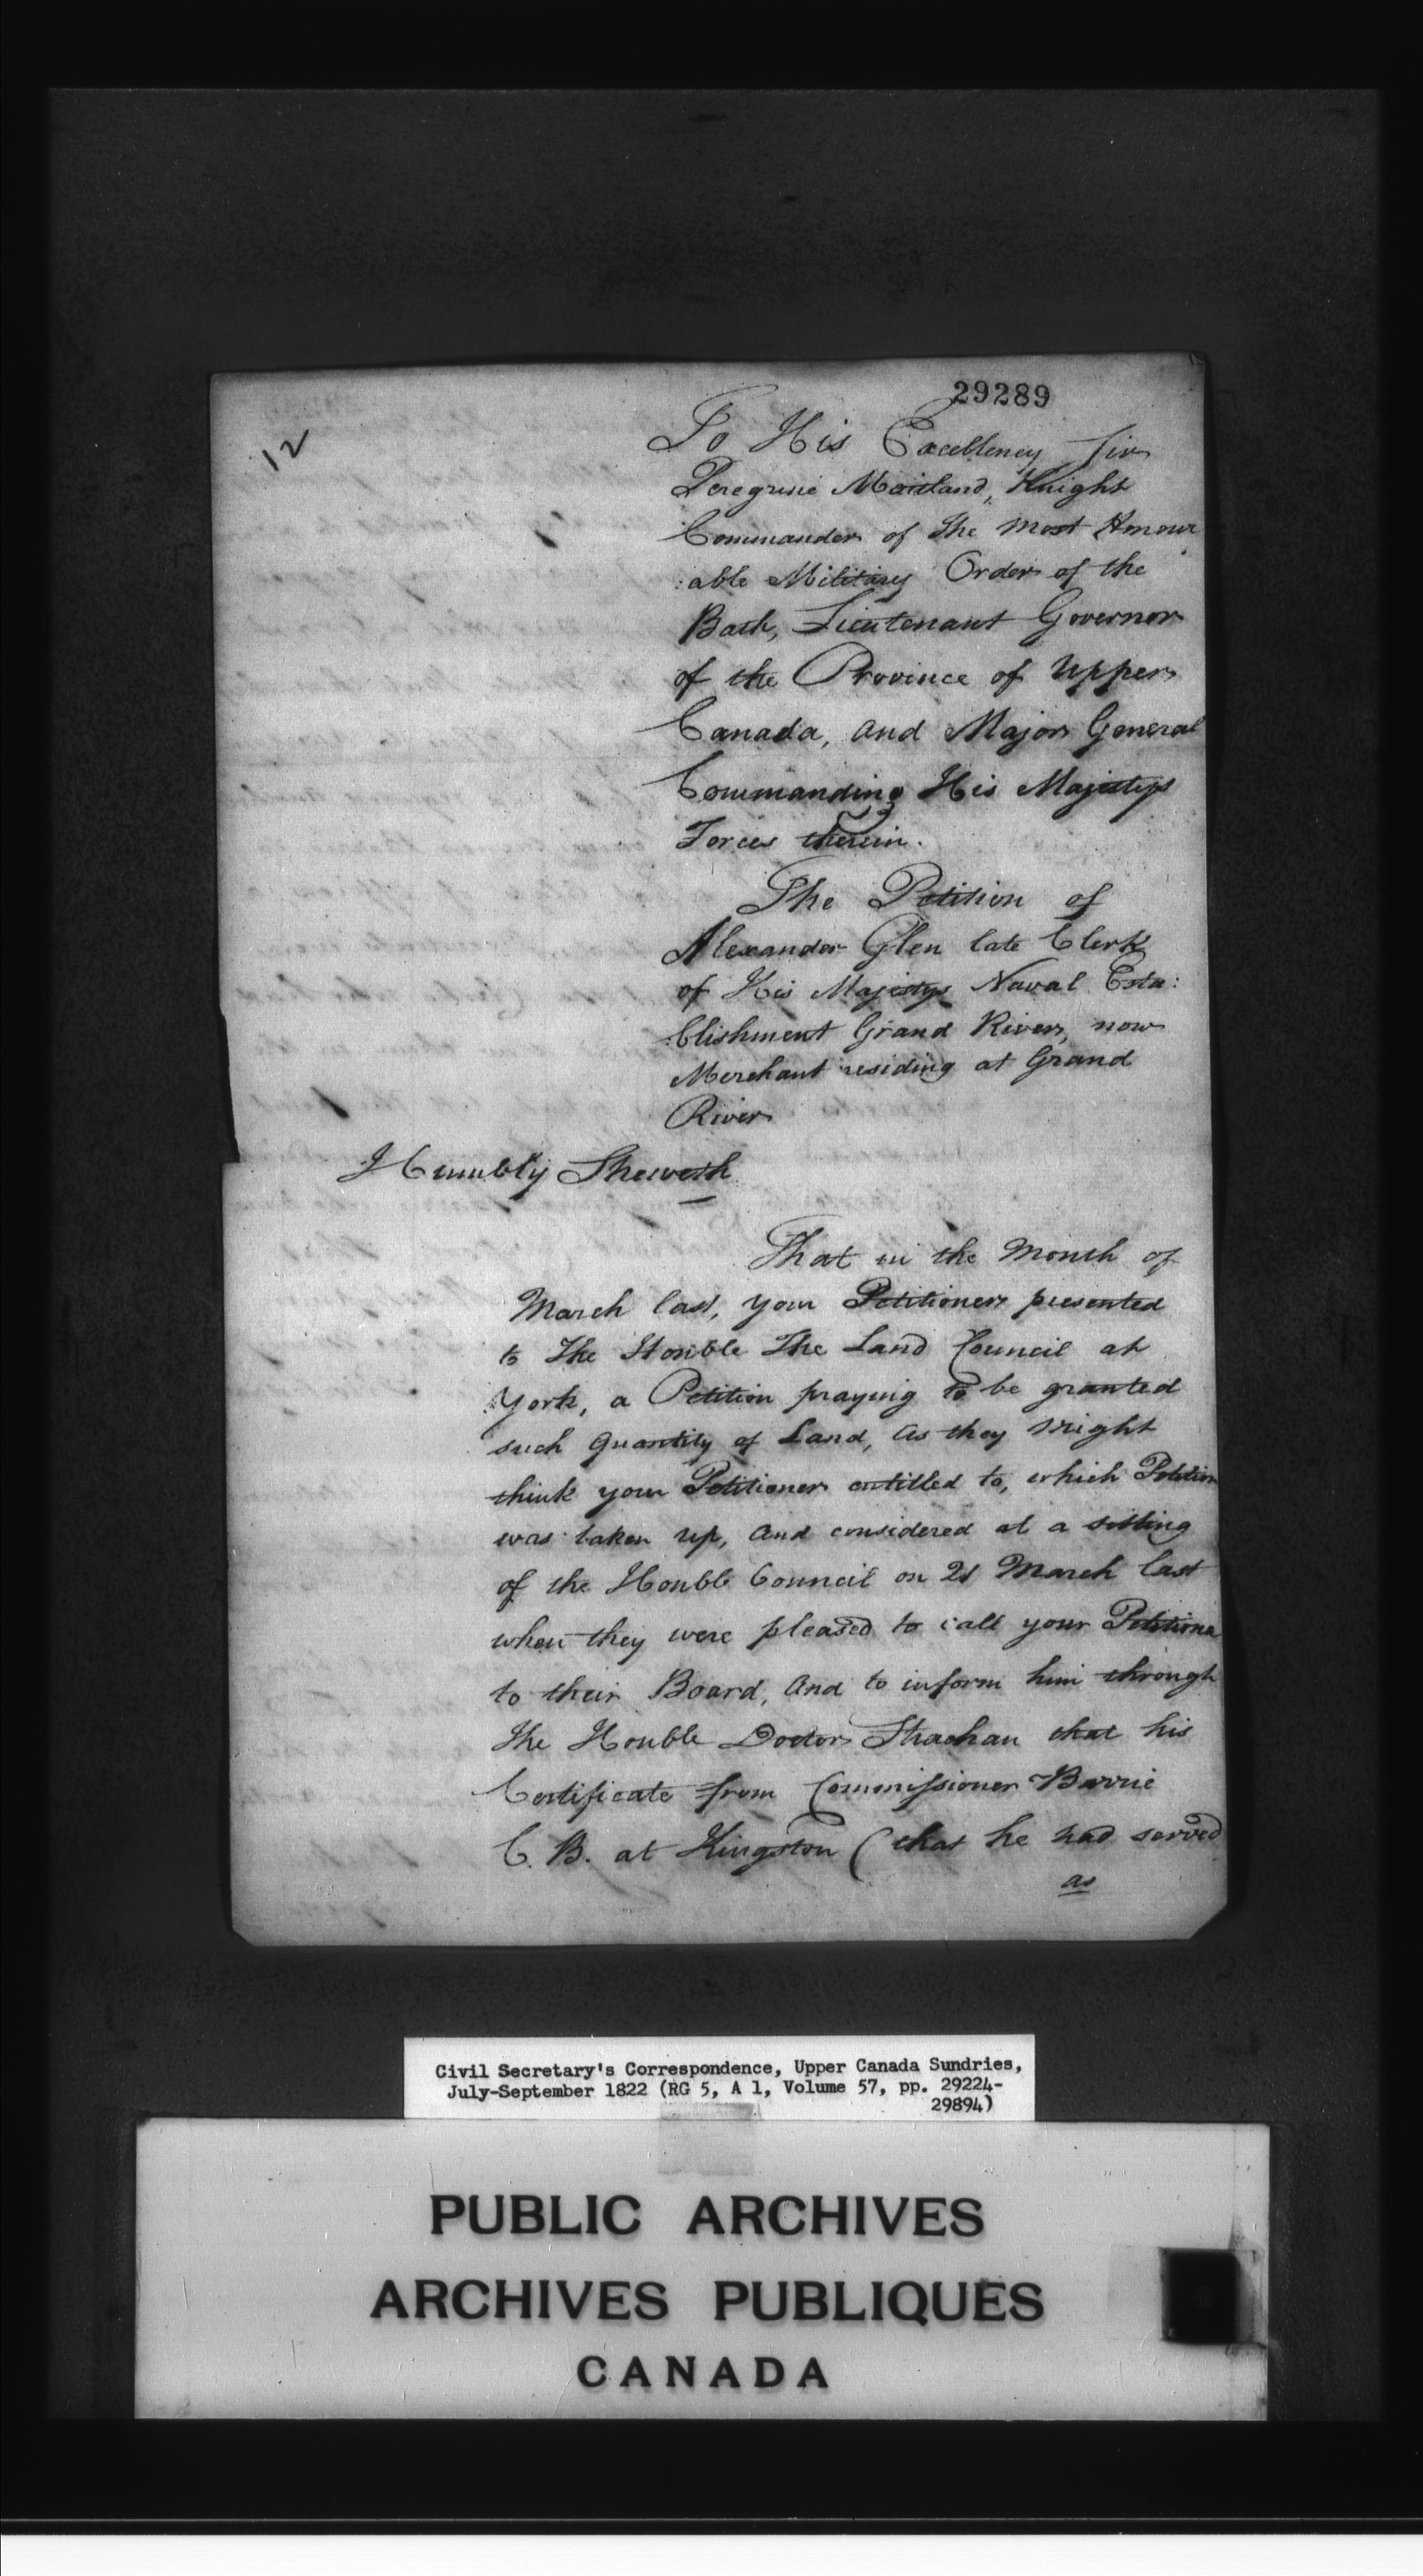 29289
12
To His Excellency Sir
Peregrine Maitland, Knight
Commander of The Most Honour
:able Military Order of the
Bath, Lieutenant Governor
of the Province of Upper
Canada, and Major General
Commanding His Majestys
Forces therein.
The Petition of
Alexander Glen late Clerk
of His Majestys Naval Esta:
:blishment Grand River, now
Merchant residing at Grand
River
Humbly Sheweth
That in the Month of
March last, your Petitioner presented
to The Honble The Land Council at
York, a Petition praying to be granted
such quantity of Land, as they might
think your Petitioner entitled to, which Petition
was taken up, and considered at a sitting
of the Honble Council on 21 March last
when they were pleased to call your Petitioner
to their Board, and to inform him through
The Honble Doctor Strachan that his
Certificate from Commissioner Barrie
C. B. at Kingston (that he had served
as
Civil Secretary's Correspondence, Upper Canada Sundries,
July-September 1822 (RG 5, A 1, Volume 57, pp. 29224-
29894)
PUBLIC ARCHIVES
ARCHIVES PUBLIQUES
CANADA